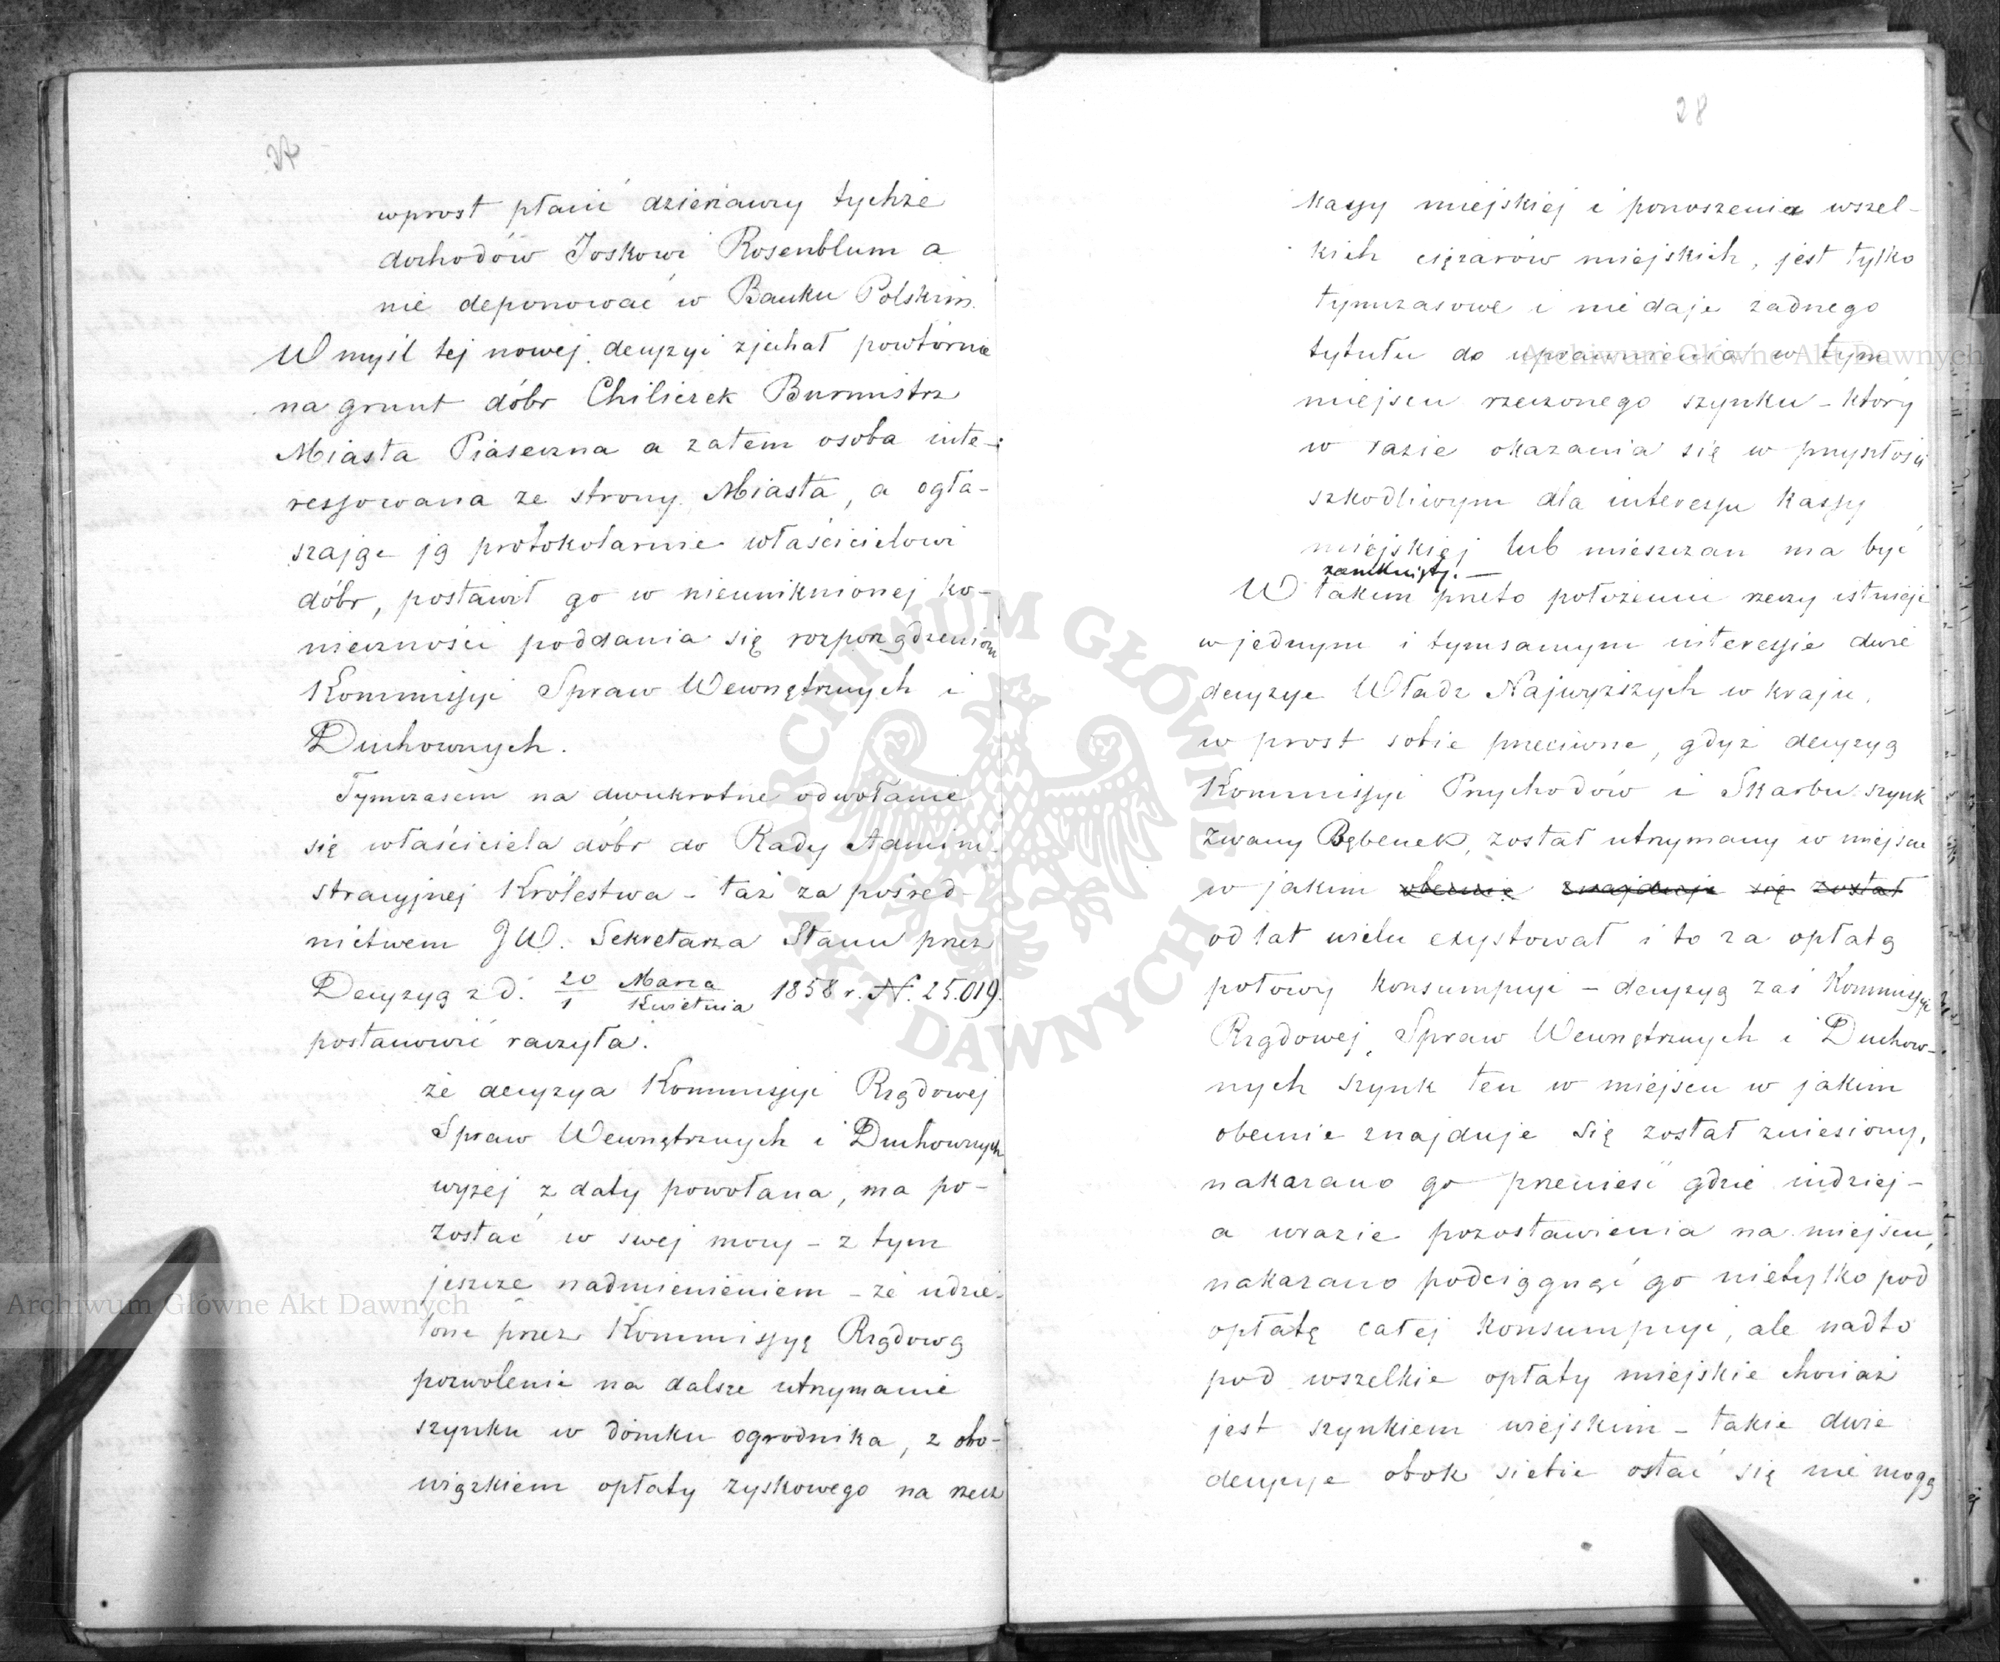 27
wprost płacić dzierżawcy tychże
dochodów Joskowi Rosenblum a
nie deponować w Banku Polskim.
W myśl tej nowej decyzyi zjechał powtórnie
na grunt dóbr Chiliczek Burmistrz
Miasta Piaseczna a zatem osoba inte-
ressowana ze strony Miasta, a ogła-
szając ją protokolarnie właścicielowi
dóbr, postawił go w nieuniknionej ko-
nieczności poddania się rozporządzeniom
Kommissyi Spraw Wewnętrznych i
Duchownych.
Tymczasem na dwukrotne odwołanie
się właściciela dóbr do Rady Admini-
stracyjnej Królestwa – taż za pośred-
nictwem JW. Sekretarza Stanu przez
Decyzyą z d. 20/1 Marca/Kwietnia 1858 r. N. 25.019.
postanowić raczyła.
że decyzya Kommissyi Rządowej
Spraw Wewnętrznych i Duchownych
wyżej z daty powołana, ma po-
zostać w swej mocy – z tym
jeszcze nadmienieniem – że udzie-
lone przez Kommissyę Rządową
pozwolenie na dalsze utrzymanie
szynku w domku ogrodnika, z obo-
wiązkiem opłaty zyskowego na rzecz
28
kassy miejskiej i ponoszenia wszel-
kich ciężarów miejskich, jest tylko
tymczasowe i nie daje żadnego
tytułu do uprawnienia w tym
miejscu rzeczonego szynku – który
w razie okazania się w przyszłości
szkodliwym dla interessu kassy
miejskiej lub mieszczan ma być
zamknięty. –
W takim przeto położeniu rzeczy istnieje
w jednym i tymsamym interessie dwie
decyzye Władz Najwyższych w kraju,
w prost sobie przeciwne, gdyż decyzyą
Kommissyi Przychodów i Skarbu szynk
zwany Bębenek, został utrzymany w miejscu
w jakim obecnie znajduje się został
od lat wielu exystował i to za opłatą
połowy konsumpcyi – decyzyą zaś Kommissyi
Rządowej Spraw Wewnętrznych i Duchow-
nych szynk ten w miejscu w jakim
obecnie znajduje się został zniesiony,
nakazano go przenieść gdzie indziej –
a wrazie pozostawienia na miejscu,
nakazano podciągnąć go nietylko pod
opłatę całej konsumpcyi, ale nadto
pod wszelkie opłaty miejskie chociaż
jest szynkiem wiejskim – takie dwie
decyzye obok siebie ostać się nie mogą
Archiwum Główne Akt Dawnych
Archiwum Główne Akt Dawnych
ARCHIWUM GŁÓWNE AKT DAWNYCH